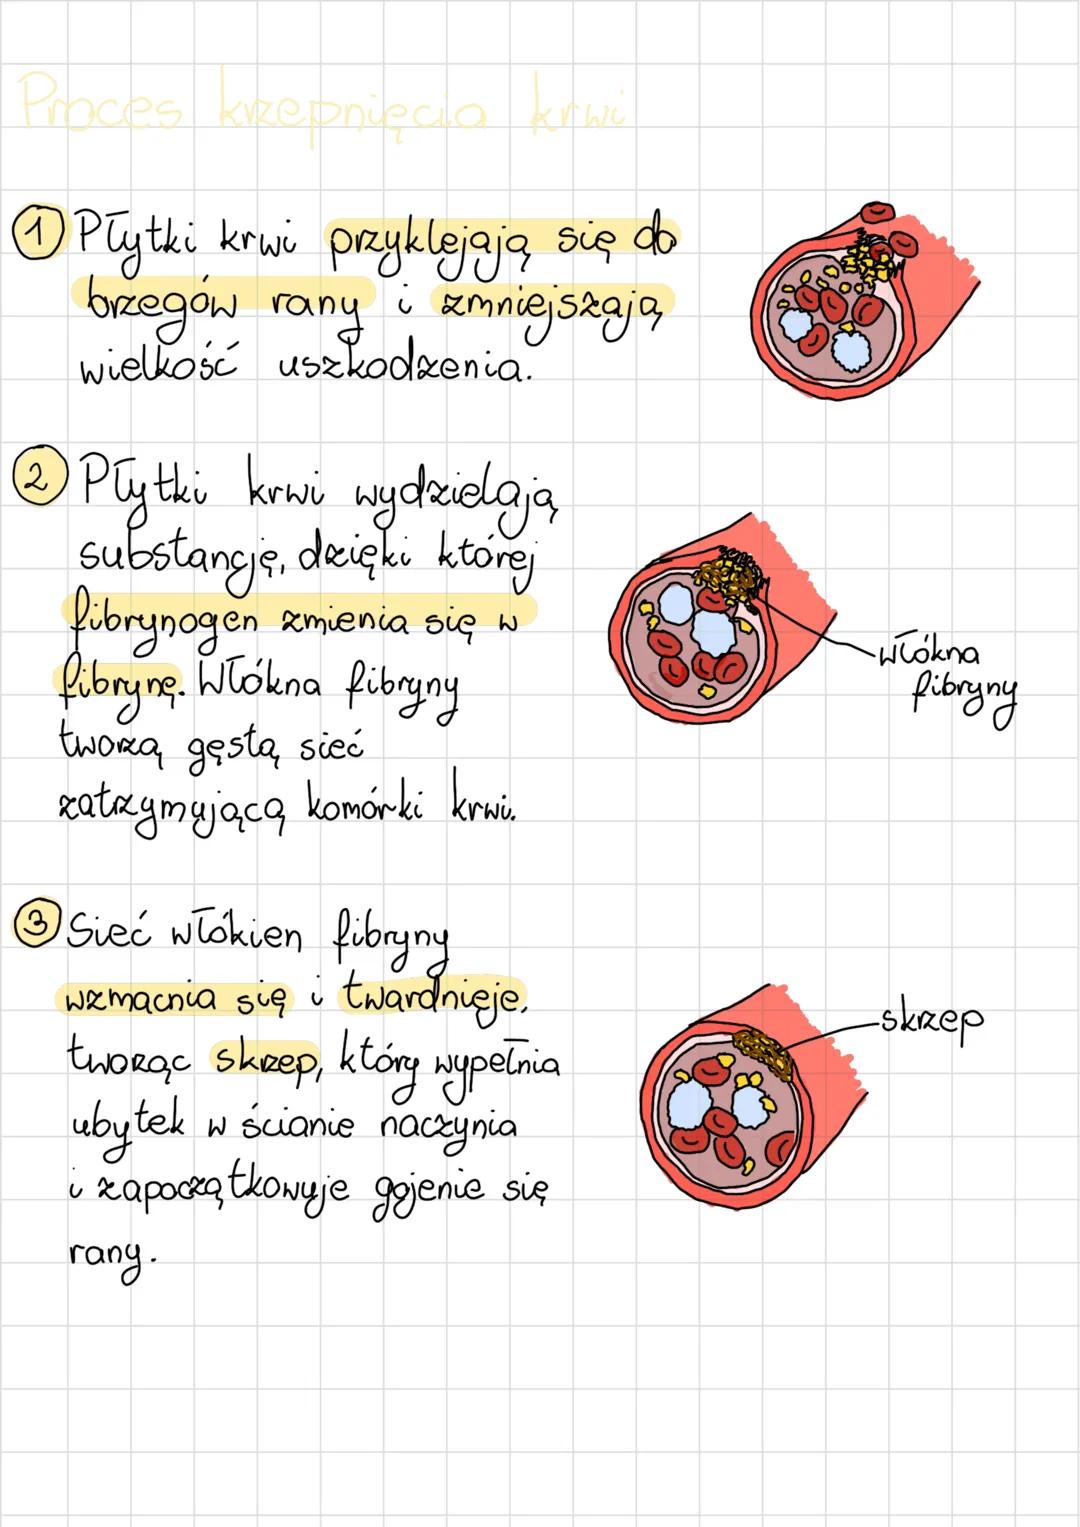 Proces krzepnięcia krwi
1 Płytki krwi przyklejają się do
brzegów rany i zmniejszają
wielkość uszkodzenia.
2 Płytki krwi wydzielają
substancję, dzięki której
fibrynogen zmienia się w
fibrynę. Włókna fibryny
tworzą gęstą sieć
zatrzymującą komórki krwi.
włókna
fibryny
3 Sieć włókien fibryny
wzmacnia się i twardnieje,
tworząc skrzep, który wypełnia
ubytek w ścianie naczynia
i zapoczątkowuje gojenie się
rany.
skrzep